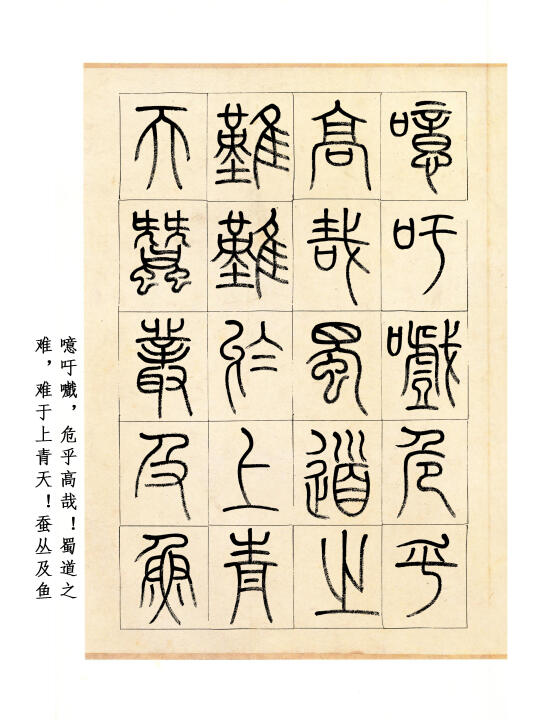 噫吁嚱危乎
高哉蜀道之
難難於上青
天蠶叢及魚
噫吁嚱，危乎高哉！蜀道之
难，难于上青天！蚕丛及鱼